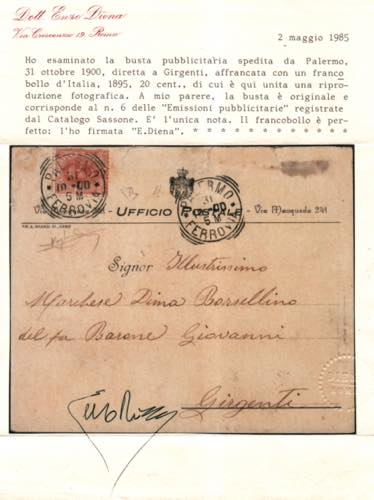 Dott. Enzo Diena
Via Crescenzio 19, Roma
2 maggio 1985
Ho esaminato la busta pubblicitaria spedita da Palermo,
31 ottobre 1900, diretta a Girgenti, affrancata con un franco
bollo d'Italia, 1895, 20 cent., di cui è qui unita una ripro-
duzione fotografica. A mio parere, la busta è originale e
corrisponde al n. 6 delle "Emissioni pubblicitarie" registrate
dal Catalogo Sassone. E' l'unica nota. Il francobollo è per-
fetto: l'ho firmata "E.Diena". * * * * * * * * * * * * * * *
PALERMO
31
10-00
5 M
FERROVIA
PALERMO
31
00
5 M
FERROVIA
UFFICIO POSTAL Via Macqueda 241
Signor Illustrissimo
Marchese Dima Borsellino
del fu Barone Giovanni
Girgenti